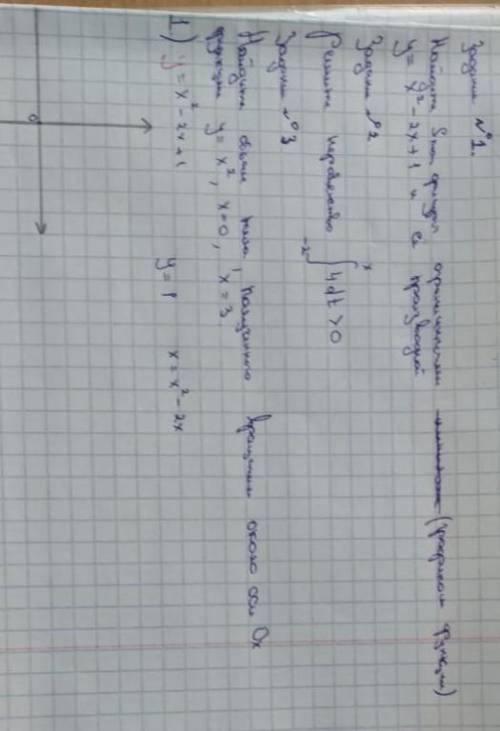 Задача №1.
Найдите S пл фигуры ограниченной (графиком функции)
y = x² - 2x + 1 и её производной
Задача №2
Решите неравенство ∫₋₂ˣ 4dt > 0
Задача №3
Найдите объем тела, полученного вращением около оси Ox
функции y = x², x = 0, x = 3.
1) y = x² - 2x + 1 y = 1 x = x² - 2x
0